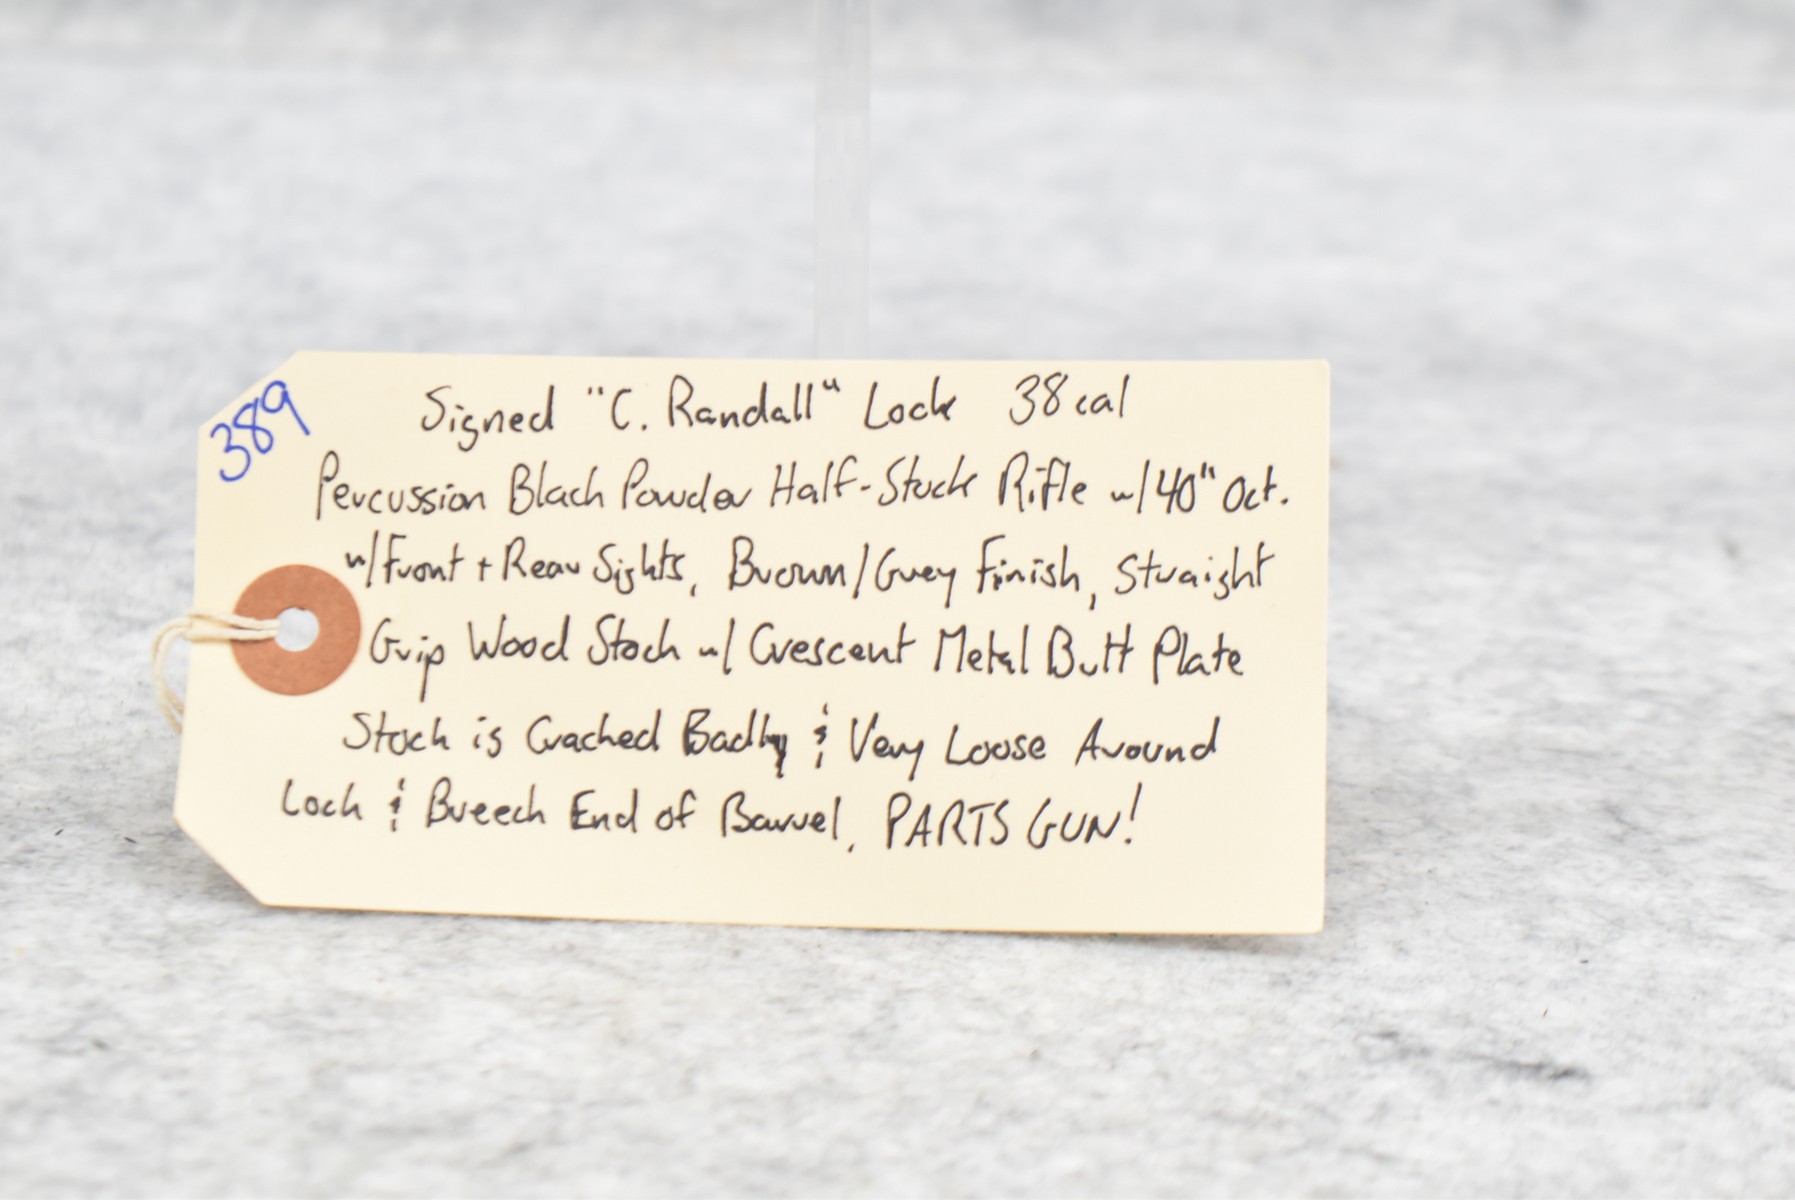 389
Signed "C. Randall" Lock 38 cal
Percussion Black Powder Half-Stock Rifle w/ 40" Oct.
w/ Front + Rear Sights, Brown/Grey Finish, Straight
Grip Wood Stock w/ Crescent Metal Butt Plate
Stock is Cracked Badly & Very Loose Around
Lock & Breech End of Barrel, PARTS GUN!